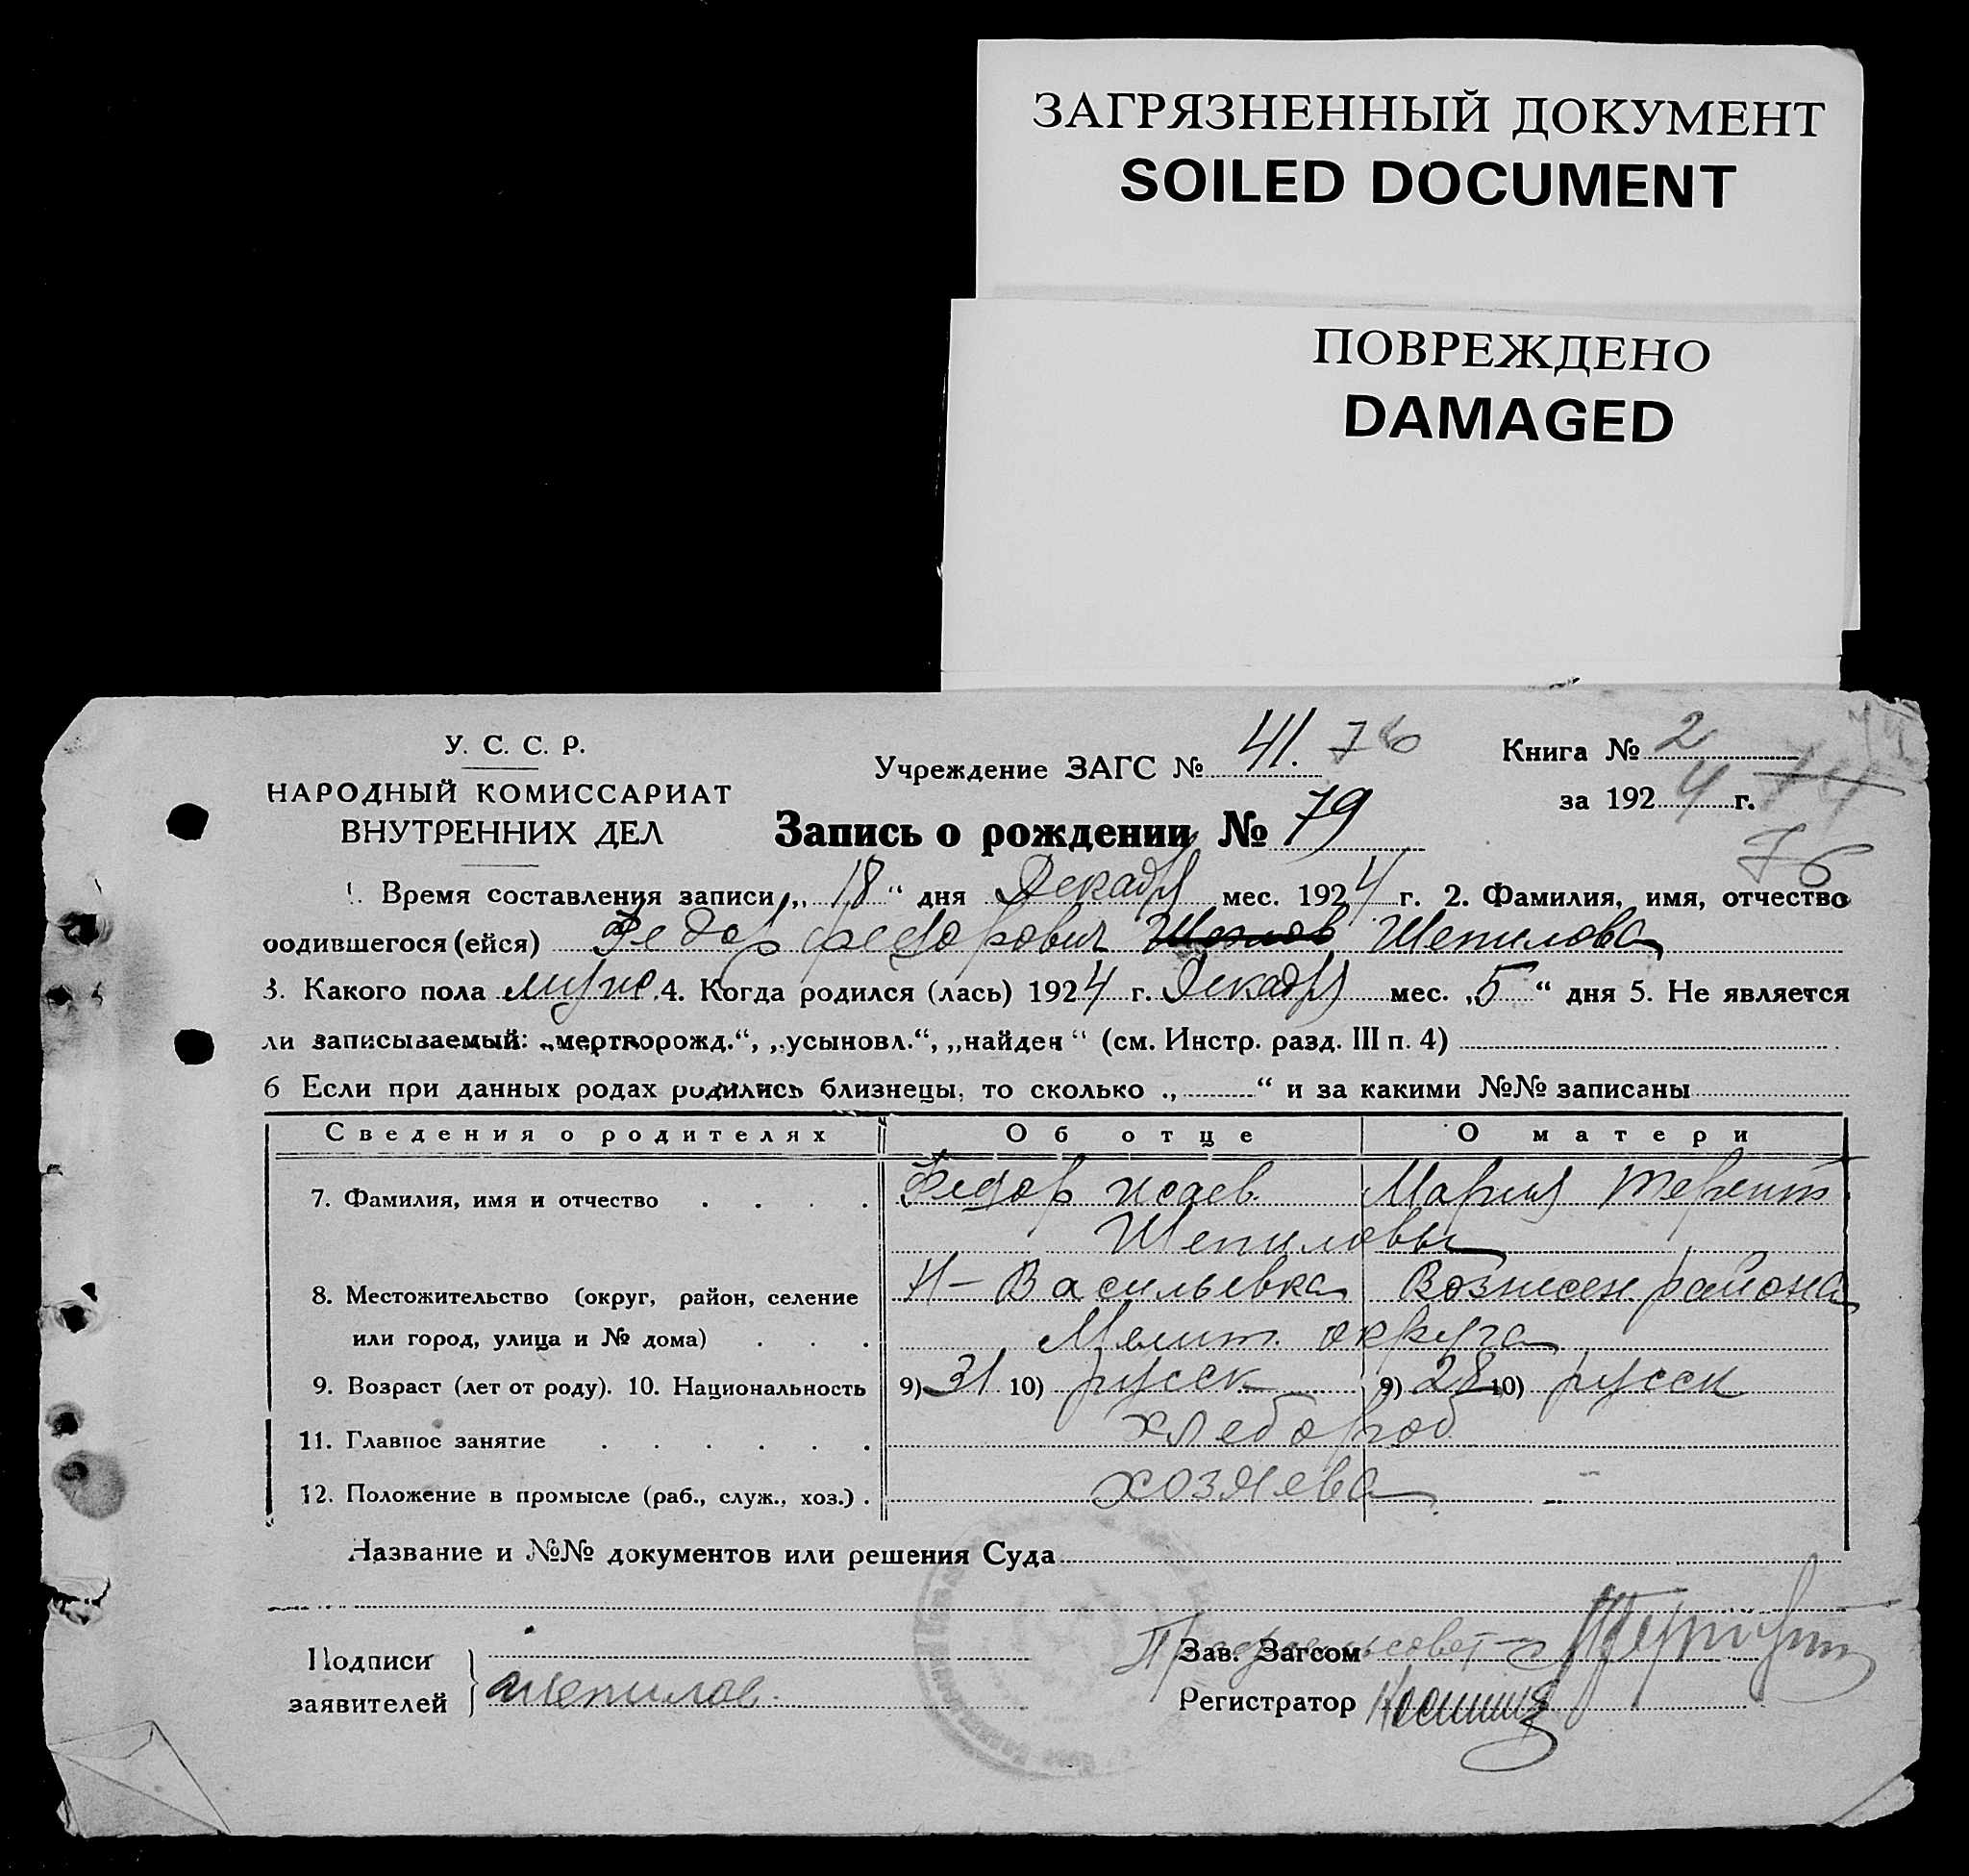 ЗАГРЯЗНЕННЫЙ ДОКУМЕНТ
SOILED DOCUMENT
ПОВРЕЖДЕНО
DAMAGED
У. С. С. Р.
НАРОДНЫЙ КОМИССАРИАТ
ВНУТРЕННИХ ДЕЛ
Учреждение ЗАГС № 41. 76
Книга № 2
за 1924 г. 74
Запись о рождении № 79
76
1. Время составления записи „18“ дня Декабря мес. 1924 г. 2. Фамилия, имя, отчество
родившегося (ейся) Федор Федорович Шепилова
3. Какого пола муж. 4. Когда родился (лась) 1924 г. Декабря мес. „5“ дня 5. Не является
ли записываемый: „мертворожд.“, „усыновл.“, „найден“ (см. Инстр. разд. III п. 4)
6 Если при данных родах родились близнецы, то сколько „ “ и за какими №№ записаны
Сведения о родителях Об отце О матери
7. Фамилия, имя и отчество Федор Исаев. Мария Терент
Шепиловы
8. Местожительство (округ, район, селение Н-Васильевка Вознесен. района
или город, улица и № дома) Мелит. округа
9. Возраст (лет от роду). 10. Национальность 9) 31 10) русск 9) 28 10) русск
11. Главное занятие хлебороб
12. Положение в промысле (раб., служ., хоз.) хозяева
Название и №№ документов или решения Суда
Подписи
заявителей Шепилов.
Зав. Загсом
Регистратор